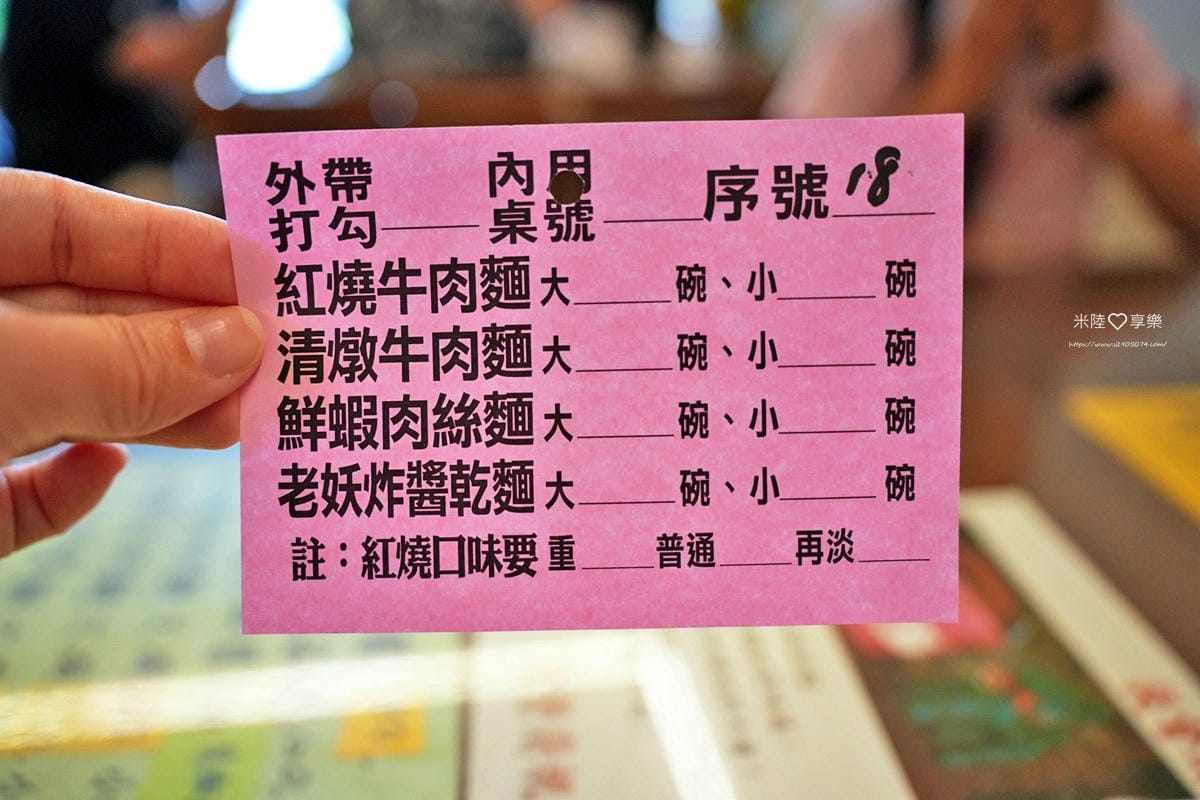 外帶 內用 序號 18
打勾____ 桌號____
紅燒牛肉麵 大____碗、小____碗
清燉牛肉麵 大____碗、小____碗
鮮蝦肉絲麵 大____碗、小____碗
老妖炸醬乾麵 大____碗、小____碗
註：紅燒口味要 重____普通____再淡____
米陸♡享樂
https://www.s2905074.com/